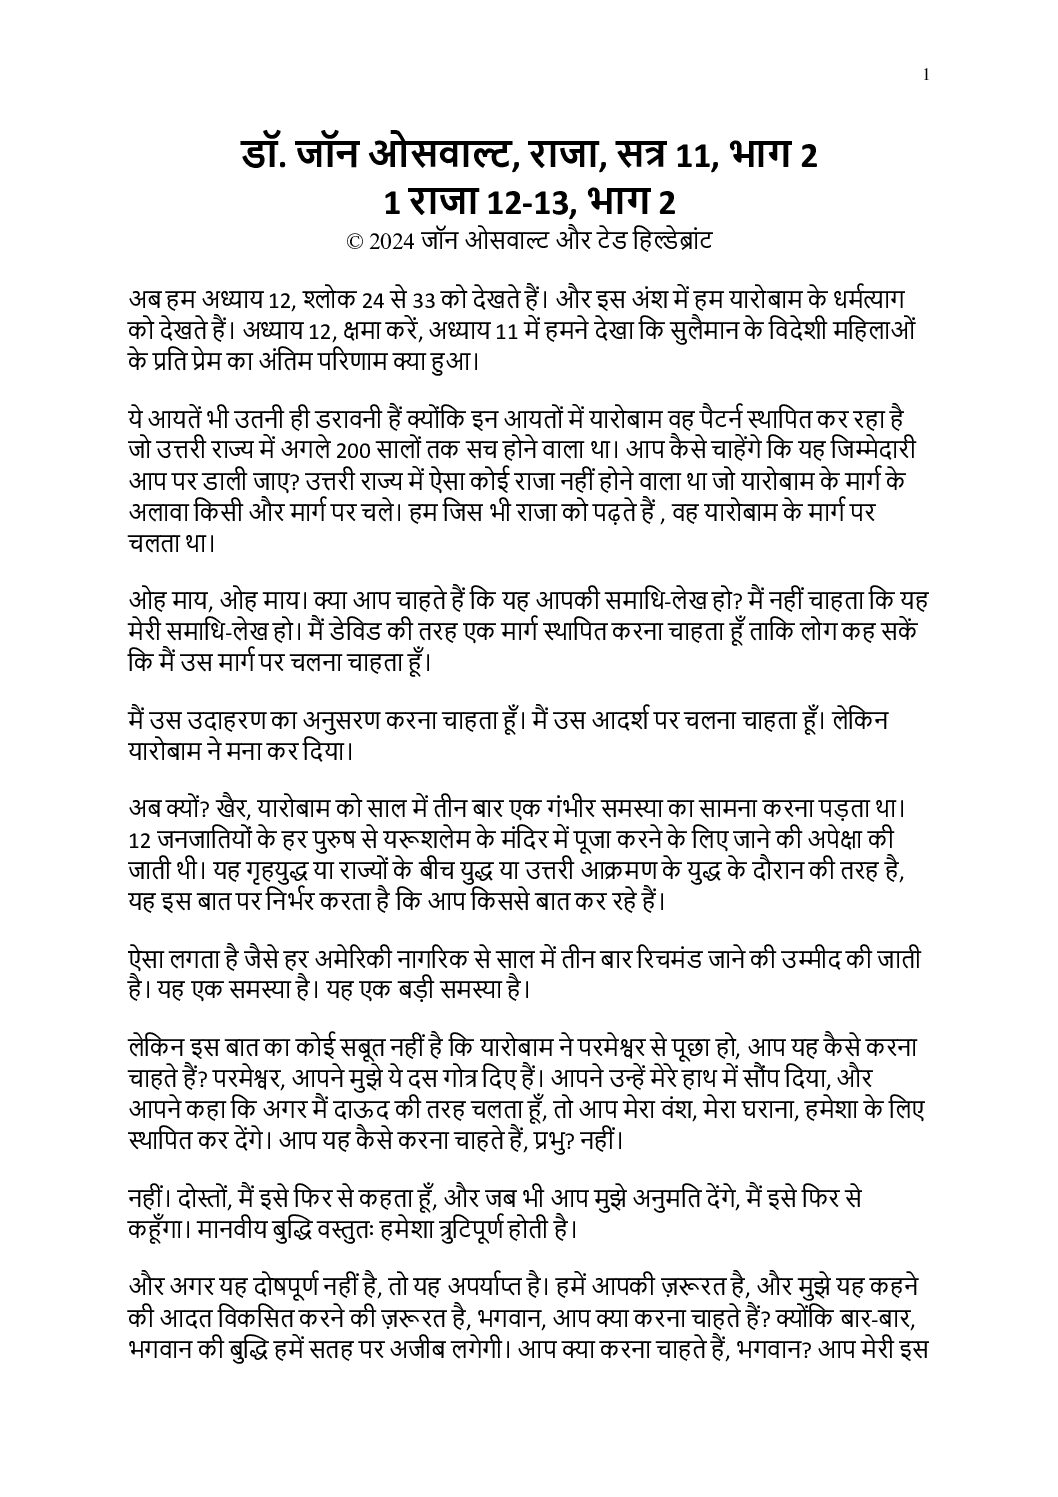 1
डॉ. जॉन ओसवाल्ट, राजा, सत्र 11, भाग 2
1 राजा 12-13, भाग 2
© 2024 जॉन ओसवाल्ट और टेड हिल्डेब्रांट
अब हम अध्याय 12, श्लोक 24 से 33 को देखते हैं। और इस अंश में हम यारोबाम के धर्मत्याग
को देखते हैं। अध्याय 12, क्षमा करें, अध्याय 11 में हमने देखा कि सुलैमान के विदेशी महिलाओं
के प्रति प्रेम का अंतिम परिणाम क्या हुआ।
ये आयतें भी उतनी ही डरावनी हैं क्योंकि इन आयतों में यारोबाम वह पैटर्न स्थापित कर रहा है
जो उत्तरी राज्य में अगले 200 सालों तक सच होने वाला था। आप कैसे चाहेंगे कि यह जिम्मेदारी
आप पर डाली जाए? उत्तरी राज्य में ऐसा कोई राजा नहीं होने वाला था जो यारोबाम के मार्ग के
अलावा किसी और मार्ग पर चले। हम जिस भी राजा को पढ़ते हैं , वह यारोबाम के मार्ग पर
चलता था।
ओह माय, ओह माय। क्या आप चाहते हैं कि यह आपकी समाधि-लेख हो? मैं नहीं चाहता कि यह
मेरी समाधि-लेख हो। मैं डेविड की तरह एक मार्ग स्थापित करना चाहता हूँ ताकि लोग कह सकें
कि मैं उस मार्ग पर चलना चाहता हूँ।
मैं उस उदाहरण का अनुसरण करना चाहता हूँ। मैं उस आदर्श पर चलना चाहता हूँ। लेकिन
यारोबाम ने मना कर दिया।
अब क्यों? खैर, यारोबाम को साल में तीन बार एक गंभीर समस्या का सामना करना पड़ता था।
12 जनजातियों के हर पुरुष से यरूशलेम के मंदिर में पूजा करने के लिए जाने की अपेक्षा की
जाती थी। यह गृहयुद्ध या राज्यों के बीच युद्ध या उत्तरी आक्रमण के युद्ध के दौरान की तरह है,
यह इस बात पर निर्भर करता है कि आप किससे बात कर रहे हैं।
ऐसा लगता है जैसे हर अमेरिकी नागरिक से साल में तीन बार रिचमंड जाने की उम्मीद की जाती
है। यह एक समस्या है। यह एक बड़ी समस्या है।
लेकिन इस बात का कोई सबूत नहीं है कि यारोबाम ने परमेश्वर से पूछा हो, आप यह कैसे करना
चाहते हैं? परमेश्वर, आपने मुझे ये दस गोत्र दिए हैं। आपने उन्हें मेरे हाथ में सौंप दिया, और
आपने कहा कि अगर मैं दाऊद की तरह चलता हूँ, तो आप मेरा वंश, मेरा घराना, हमेशा के लिए
स्थापित कर देंगे। आप यह कैसे करना चाहते हैं, प्रभु? नहीं।
नहीं। दोस्तों, मैं इसे फिर से कहता हूँ, और जब भी आप मुझे अनुमति देंगे, मैं इसे फिर से
कहूँगा। मानवीय बुद्धि वस्तुतः हमेशा त्रुटिपूर्ण होती है।
और अगर यह दोषपूर्ण नहीं है, तो यह अपर्याप्त है। हमें आपकी ज़रूरत है, और मुझे यह कहने
की आदत विकसित करने की ज़रूरत है, भगवान, आप क्या करना चाहते हैं? क्योंकि बार-बार,
भगवान की बुद्धि हमें सतह पर अजीब लगेगी। आप क्या करना चाहते हैं, भगवान? आप मेरी इस